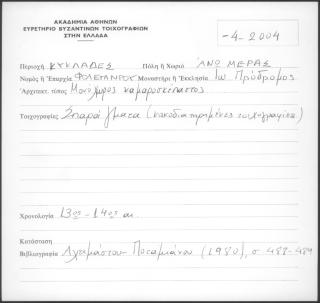 ΑΚΑΔΗΜΙΑ ΑΘΗΝΩΝ
ΕΥΡΕΤΗΡΙΟ ΒΥΖΑΝΤΙΝΩΝ ΤΟΙΧΟΓΡΑΦΙΩΝ
ΣΤΗΝ ΕΛΛΑΔΑ
-4-2004
Περιοχή ΚΥΚΛΑΔΕΣ Πόλη ἤ Χωριό ΑΝΩ ΜΕΡΑΣ
Νομός ἤ Ἐπαρχία ΦΟΛΕΓΑΝΔΡΟΥ Μοναστήρι ἤ Ἐκκλησία Ιω Πρόδρομος
Ἀρχιτεκτ. τύπος Μονόχωρος καμαροσκέπαστος
Τοιχογραφίες Σπαράγματα (κακοδιατηρημένες τοιχογραφίες)
Χρονολογία 13ος-14ος αι.
Κατάσταση
Βιβλιογραφία Αχειμάστου-Ποταμιάνου (1980), σ 487-489